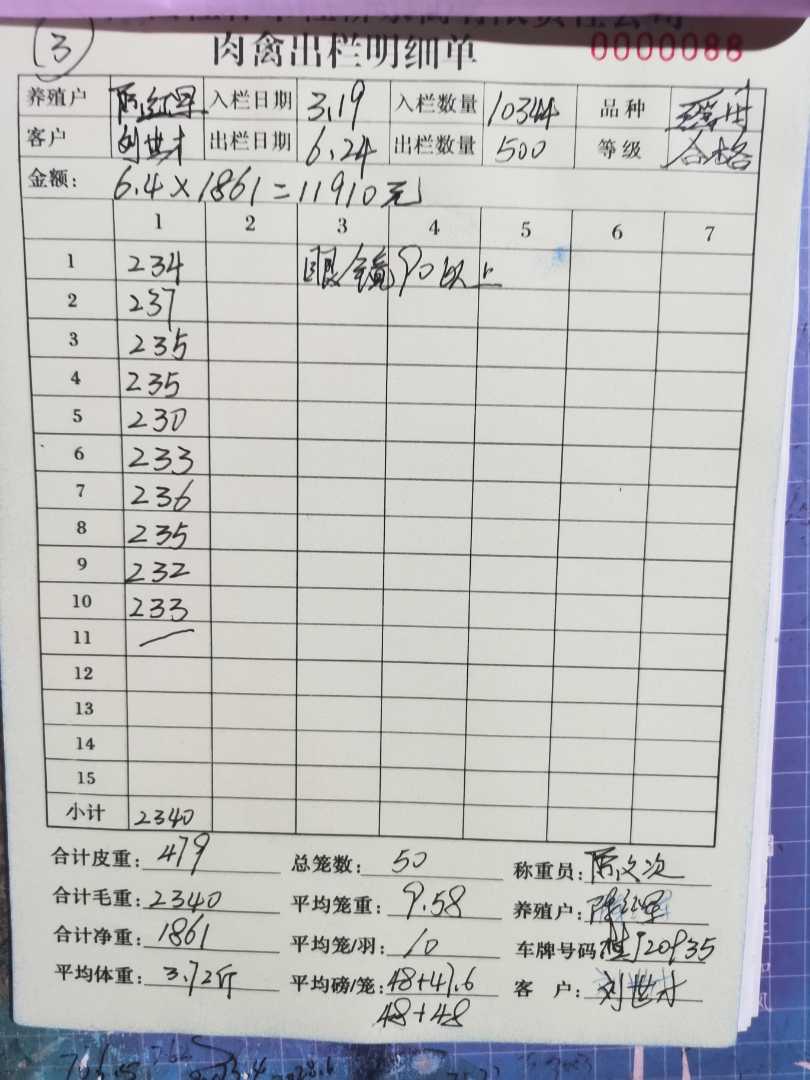 (3)
肉禽出栏明细单 0000088
养殖户 陈红军 入栏日期 3.19 入栏数量 10344 品种
客户 刘世才 出栏日期 6.24 出栏数量 500 等级 合格
金额: 6.4×1861=11910元
1 2 3 4 5 6 7
1 234 眼镜90以上
2 237
3 235
4 235
5 230
6 233
7 236
8 235
9 232
10 233
11
12
13
14
15
小计 2340
合计皮重: 479 总笼数: 50 称重员: 陈文次
合计毛重: 2340 平均笼重: 9.58 养殖户: 陈红军
合计净重: 1861 平均笼/羽: 10 车牌号码: 桂J20935
平均体重: 3.72斤 平均磅/笼: 48+47.6 客户: 刘世才
48+48